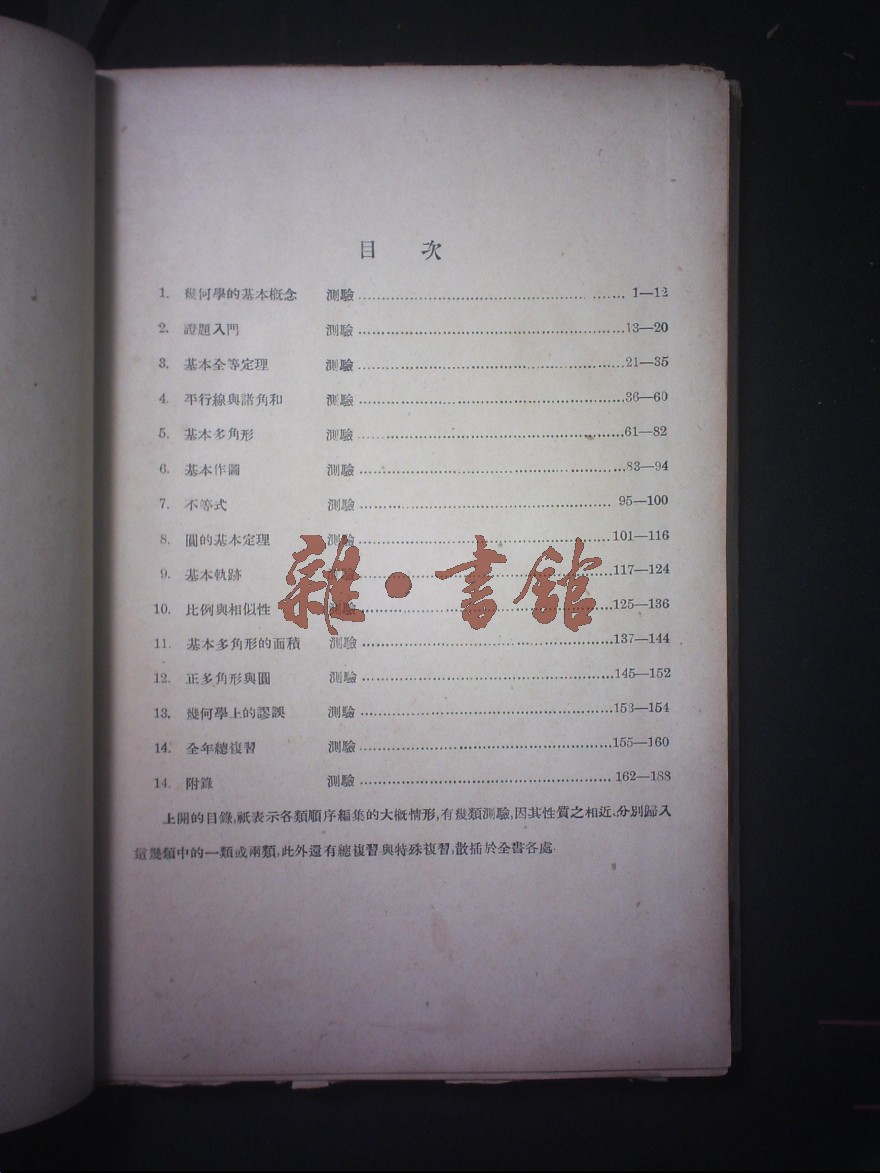 目 次
1. 幾何學的基本概念 測驗 1—12
2. 證題入門 測驗 13—20
3. 基本全等定理 測驗 21—35
4. 平行線與諸角和 測驗 36—60
5. 基本多角形 測驗 61—82
6. 基本作圖 測驗 83—94
7. 不等式 測驗 95—100
8. 圓的基本定理 測驗 101—116
9. 基本軌跡 測驗 117—124
10. 比例與相似性 測驗 125—136
11. 基本多角形的面積 測驗 137—144
12. 正多角形與圓 測驗 145—152
13. 幾何學上的謬誤 測驗 153—154
14. 全年總複習 測驗 155—160
14. 附錄 測驗 162—188
上開的目錄,祇表示各類順序編集的大概情形,有幾類測驗,因其性質之相近,分別歸入
這幾類中的一類或兩類,此外還有總複習與特殊複習,散插於全書各處.
雜·書館